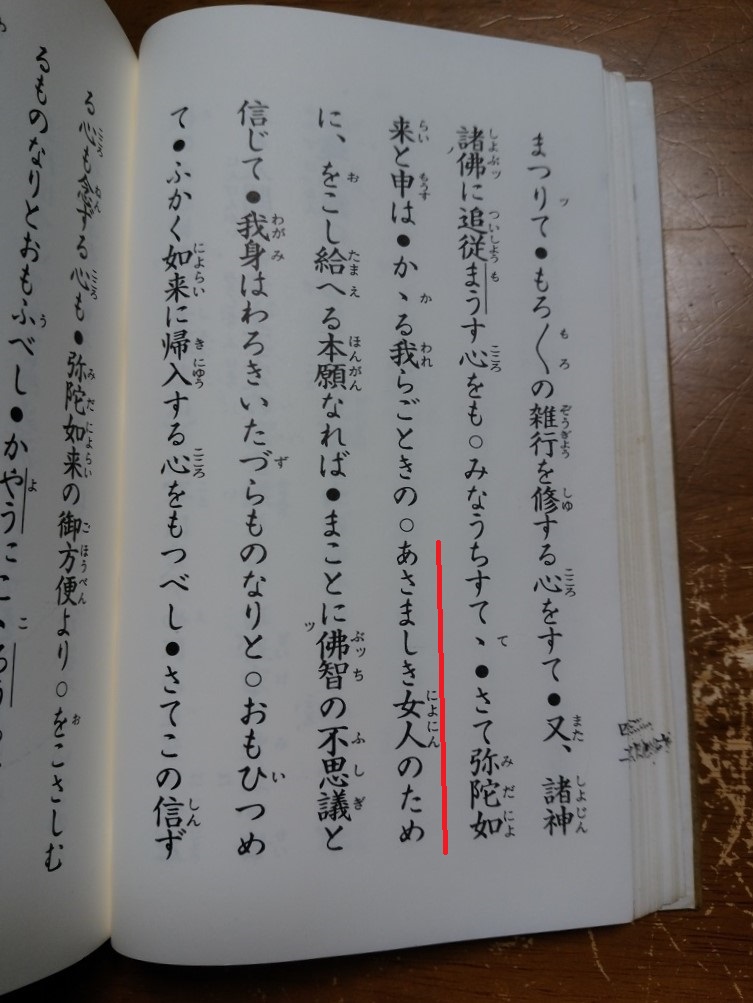 まつりて●もろ〳〵の雑行を修する心をすて●又、諸神
諸佛に追従まうす心をも○みなうちすてヽ●さて弥陀如
来と申は●かヽる我らごときの○あさましき女人のため
に、をこし給へる本願なれば●まことに佛智の不思議と
信じて●我身はわろきいたづらものなりと○おもひつめ
て●ふかく如来に帰入する心をもつべし●さてこの信ず
る心も念ずる心も●弥陀如来の御方便より○をこさしむ
るものなりとおもふべし●かやうにこヽろう